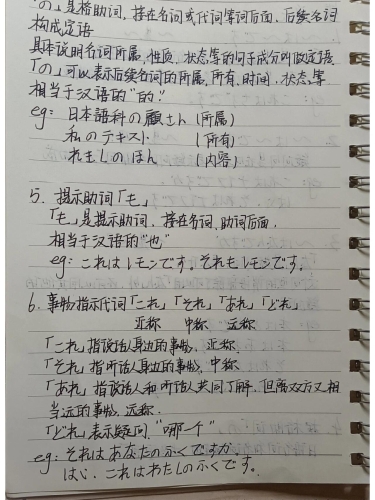 「の」是格助词，接在名词或代词等词后面，后续名词
构成定语
具体说明名词所属，性质，状态等的句子成分叫做定语
「の」可以表示后续名词的所属，所有，时间，状态，等
相当于汉语的"的"
eg：日本語科の顧さん（所属）
私のテキスト（所有）
れきしのほん（内容）
5. 提示助词「も」
「も」是提示助词，接在名词，助词后面，
相当于汉语的"也"
eg：これはレモンです。それもレモンです。
6. 事物指示代词「これ」「それ」「あれ」「どれ」
近称 中称 远称
「これ」指说话人身边的事物，近称
「それ」指听话人身边的事物，中称
「あれ」指说话人和听话人共同了解，但离双方又相
当远的事物，远称
「どれ」表示疑问，"哪一个"
eg：それはあなたのふくですか。
はい、これはわたしのふくです。